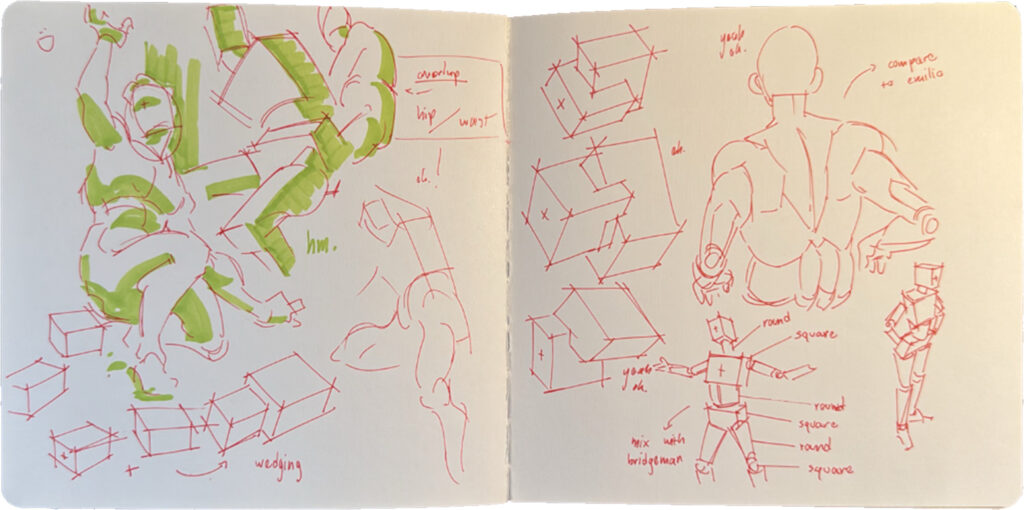 overlap
hip / waist
oh!
hm.
wedging
yeah
oh.
compare
to emilio
oh.
yeah
oh.
mix with
bridgeman
round
square
round
square
round
square